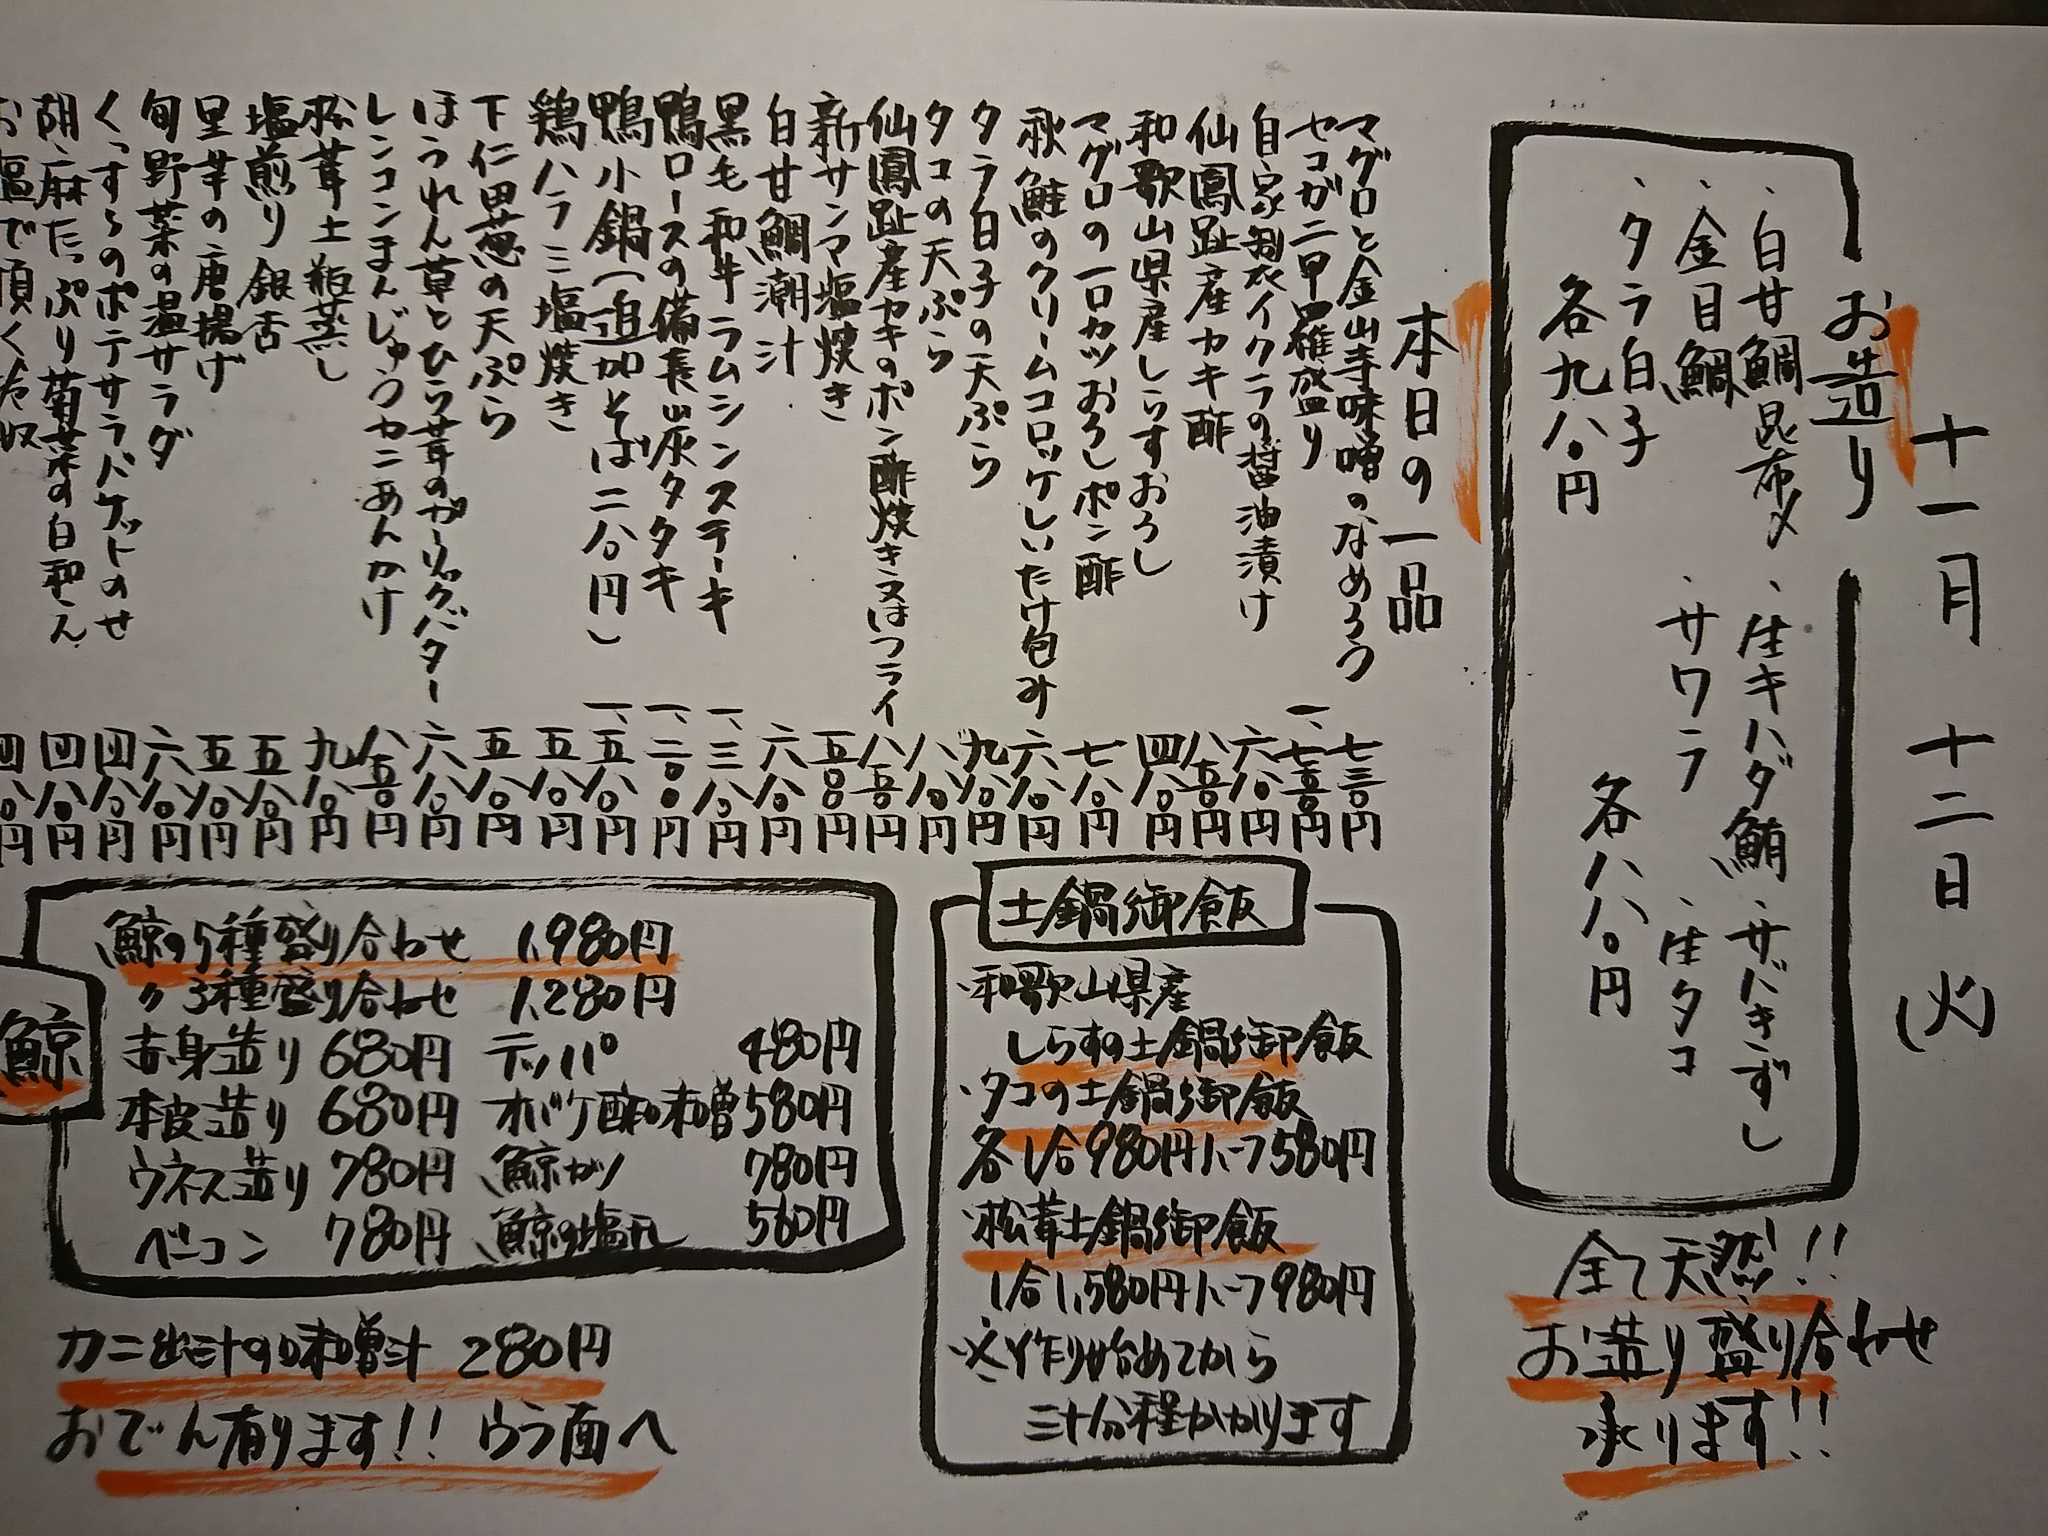 十一月 十二日 (火)
お造り
、白甘鯛昆布〆 、生キハダ鮪 、サバきずし
、金目鯛 、サワラ 、生タコ
、タラ白子
各九八〇円 各八八〇円
全て天然!!
お造り盛り合わせ
承ります!!
本日の一品
マグロと金山寺味噌のなめろう 七三〇円
セコガニ甲羅盛り 一、七五〇円
自家製イクラの醤油漬け 六八〇円
仙鳳趾産カキ酢 八五〇円
和歌山県産しらすおろし 四八〇円
マグロの一口カツおろしポン酢 七八〇円
秋鮭のクリームコロッケしいたけ包み 六八〇円
タラ白子の天ぷら 九八〇円
タコの天ぷら 八八〇円
仙鳳趾産カキのポン酢焼き又はフライ 八五〇円
新サンマ塩焼き 五〇〇円
白甘鯛潮汁 六八〇円
黒毛和牛ラムシンステーキ 一、三八〇円
鴨ロースの備長炭タタキ 一、二〇〇円
鴨小鍋(追加そば二八〇円) 一、五八〇円
鶏ハラミ塩焼き 五八〇円
下仁田葱の天ぷら 五八〇円
ほうれん草とひら茸のガーリックバター 六八〇円
レンコンまんじゅうカニあんかけ 八五〇円
松茸土瓶蒸し 九八〇円
塩煎り銀杏 五八〇円
里芋の唐揚げ 五八〇円
旬野菜の温サラダ 六八〇円
くっすうのポテサラバケットのせ 四八〇円
胡麻たっぷり菊菜の白和え 四八〇円
お塩で頂く冷奴 四八〇円
土鍋御飯
・和歌山県産
しらすの土鍋御飯
・タコの土鍋御飯
各1合980円ハーフ580円
・松茸土鍋御飯
1合1,580円ハーフ980円
※作り始めてから
三十分程かかります
鯨
鯨の5種盛り合わせ 1,980円
〃 3種盛り合わせ 1,280円
赤身造り 680円 テッパ 480円
本皮造り 680円 オバケ酢味噌 580円
ウネス造り 780円 鯨カツ 780円
ベーコン 780円 鯨の塩タレ 560円
カニ出汁の味噌汁 280円
おでん有ります!! ウラ面へ